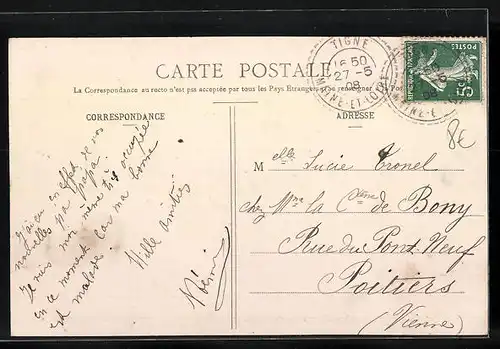 CARTE POSTALE
La Correspondance au recto n'est pas acceptée par tous les Pays Etrangers (Se renseigner à la Poste)
TIGNE
16 50
27-5
08
MAINE-ET-LOIRE
POSTES
5
8€
CORRESPONDANCE
ADRESSE
J'ai eu en effet de vos
nouvelles par papa.
Je suis moi même très occupée
en ce moment car ma bonne
est malade
Mille amitiés
Noémi
Melle Lucie Tronel
chez Mme la Ctesse de Bony
Rue du Pont Neuf
Poitiers
(Vienne)